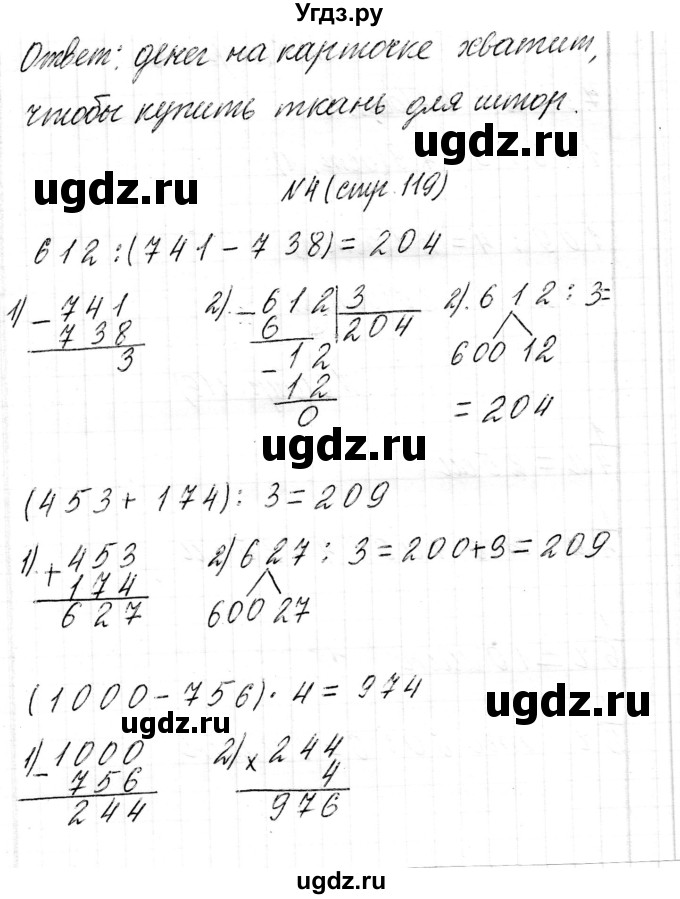 Угдз.ру
Ответ: денег на карточке хватит,
чтобы купить ткань для штор.
ugdz.ru
ugdz.ru
N4 (стр. 119)
612 : (741 - 738) = 204
1) - 741
738
3
2). - 612 | 3
6 204
- 12
12
0
2). 612 : 3 =
600 12
= 204
ugdz.ru
(453 + 174) : 3 = 209
1). + 453
174
627
2) 627 : 3 = 200 + 9 = 209
600 27
ugdz.ru
(1000 - 756) · 4 = 974
ugdz.ru
1) - 1000
756
244
2) × 244
4
976
ugdz.ru